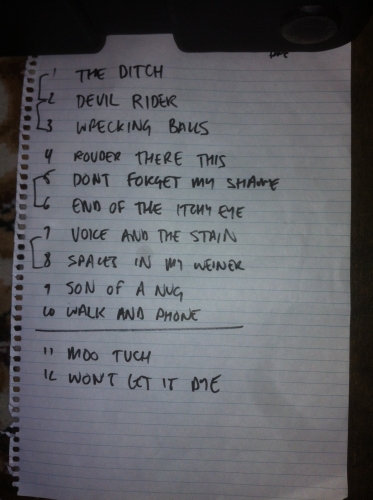 1 THE DITCH
2 DEVIL RIDER
3 WRECKING BALLS
4 ROUDER THERE THIS
5 DONT FORGET MY SHAME
6 END OF THE ITCHY EYE
7 VOICE AND THE STAIN
8 SPACES IN MY WEINER
9 SON OF A NUG
10 WALK AND PHONE
11 MOO TUCH
12 WON'T GET IT DYE